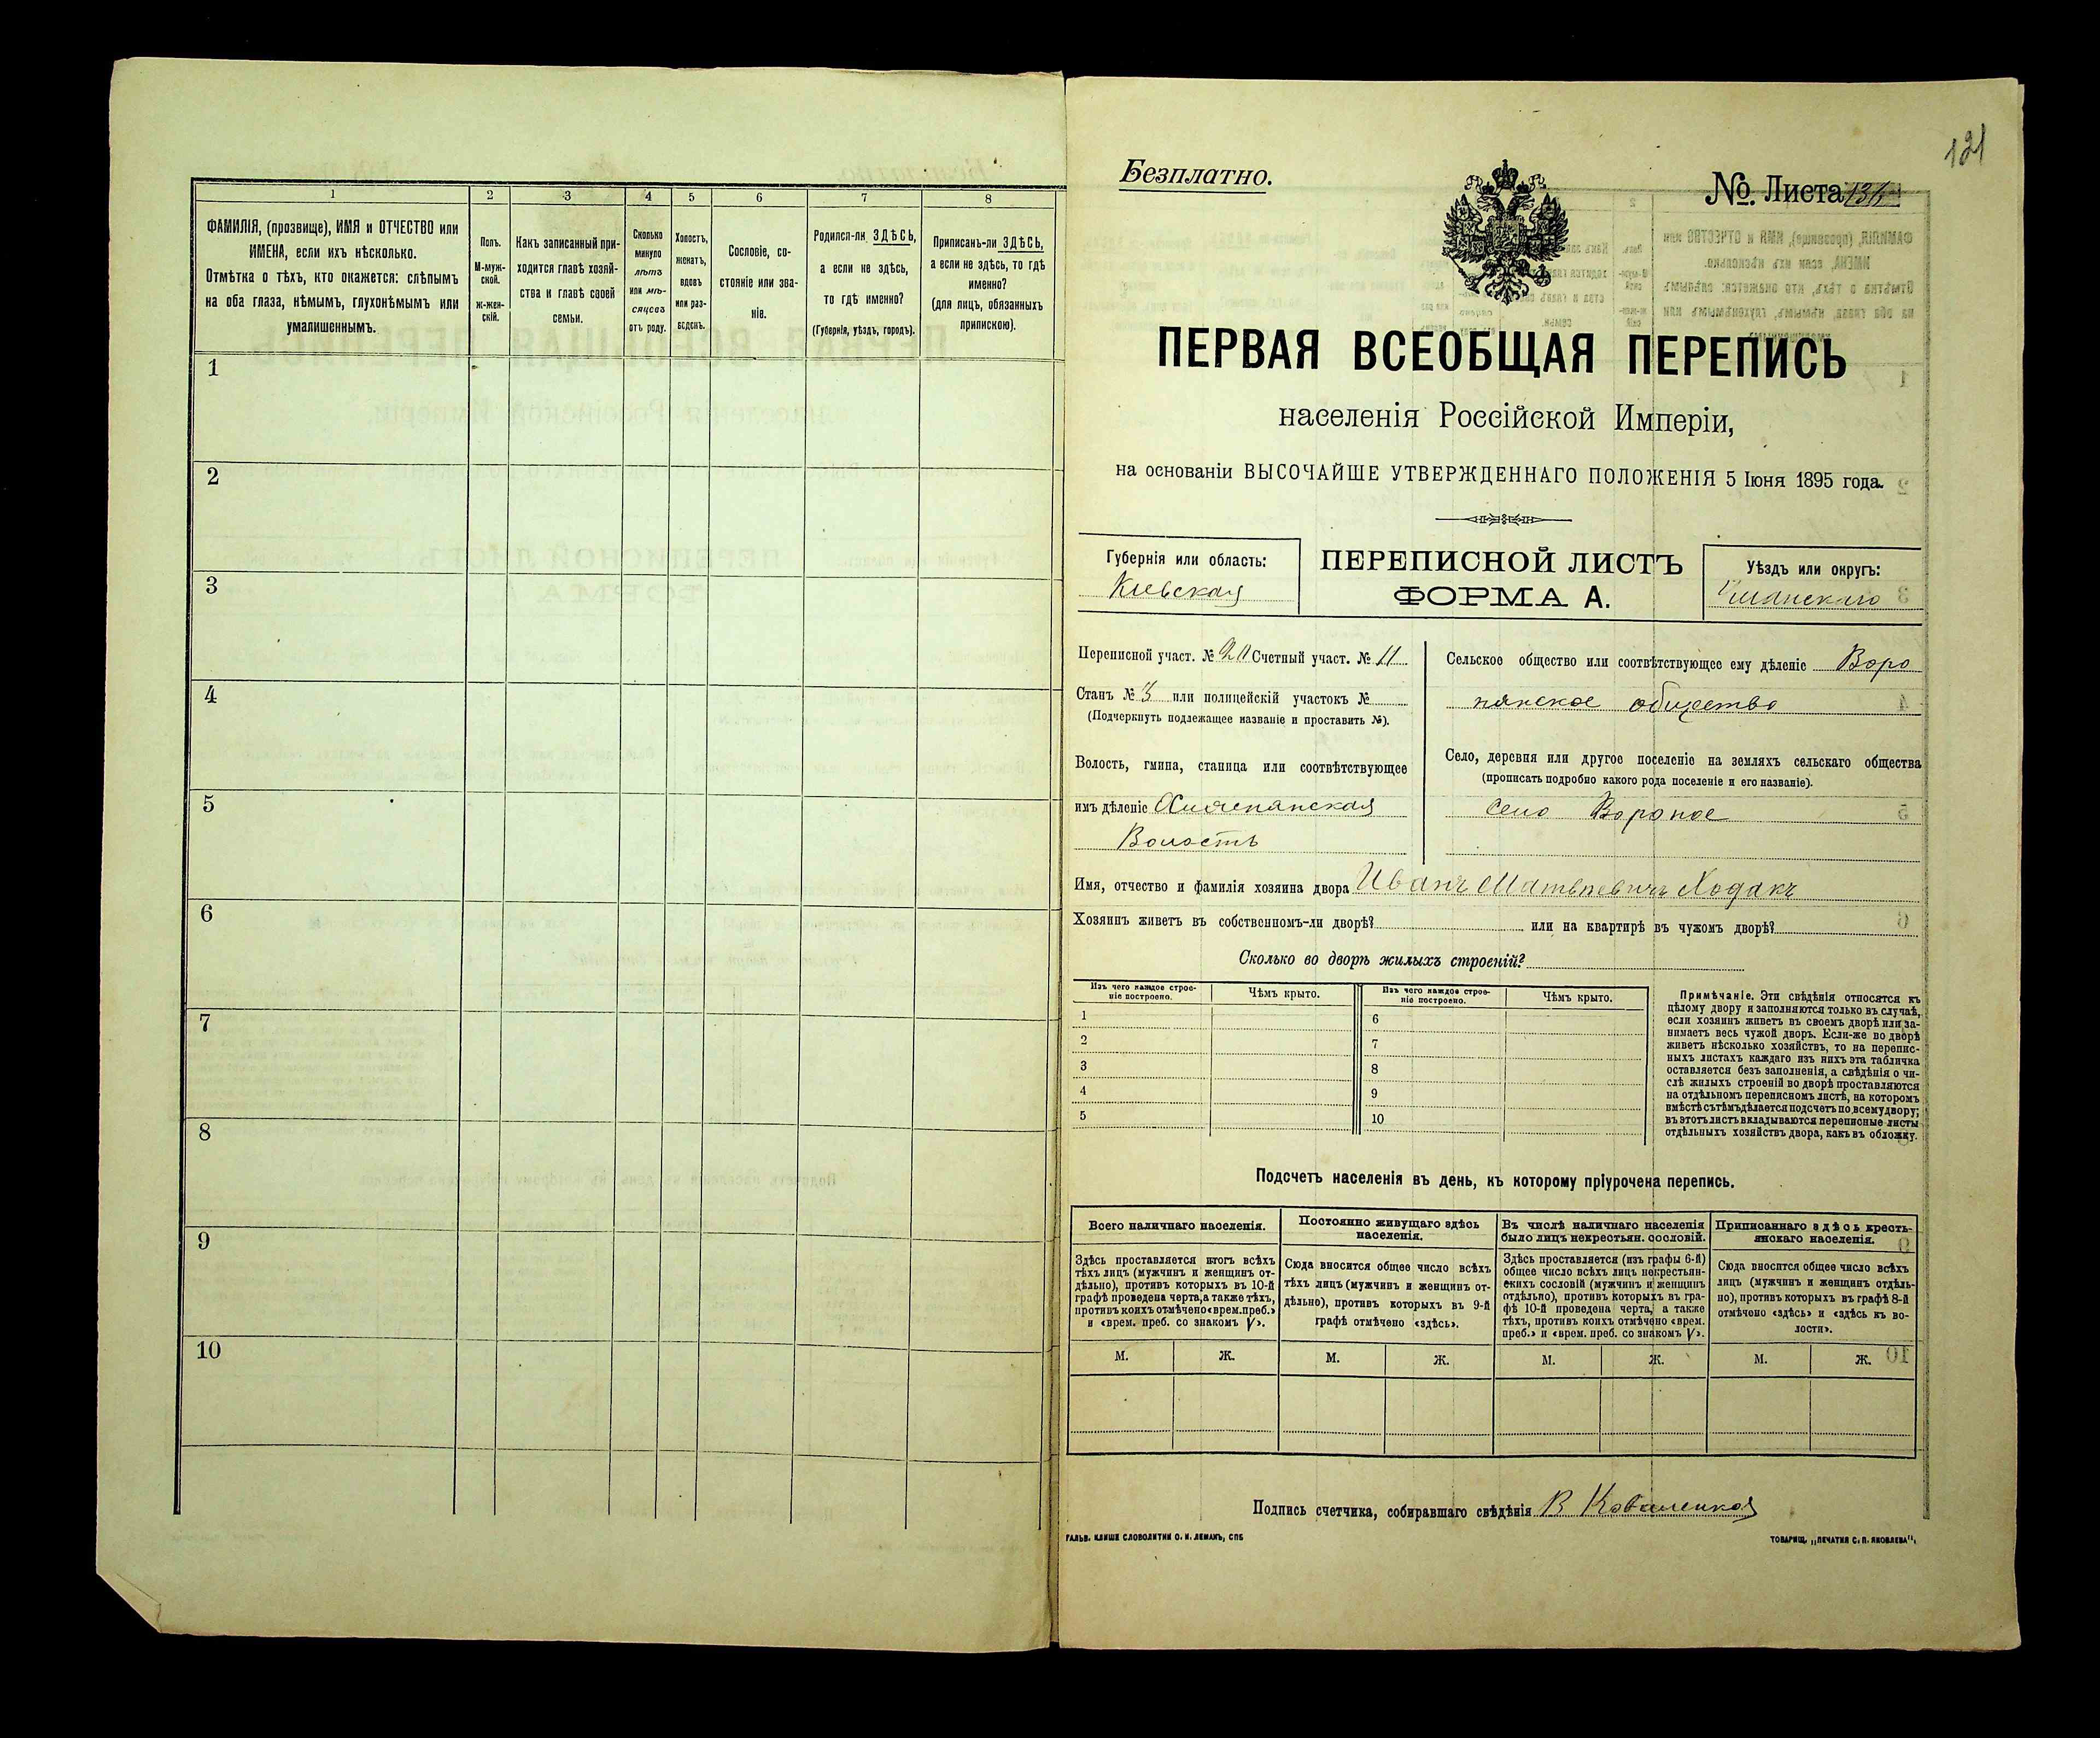 1
2
3
4
5
6
7
8
ФАМИЛІЯ, (прозвище), ИМЯ и ОТЧЕСТВО или
ИМЕНА, если ихъ нѣсколько.
Отмѣтка о тѣхъ, кто окажется: слѣпымъ
на оба глаза, нѣмымъ, глухонѣмымъ или
умалишеннымъ.
Полъ.
М-муж-
ской.
ж-жен-
скій.
Какъ записанный при-
ходится главѣ хозяй-
ства и главѣ своей
семьи.
Сколько
минуло
лѣтъ
или мѣ-
сяцевъ
отъ роду.
Холостъ,
женатъ,
вдовъ
или раз-
веденъ.
Сословіе, со-
стояніе или зва-
ніе.
Родился-ли ЗДѢСЬ,
а если не здѣсь,
то гдѣ именно?
(Губернія, уѣздъ, городъ).
Приписанъ-ли ЗДѢСЬ,
а если не здѣсь, то гдѣ
именно?
(для лицъ, обязанныхъ
припискою).
1
2
3
4
5
6
7
8
9
10
121
Безплатно.
№. Листа
ПЕРВАЯ ВСЕОБЩАЯ ПЕРЕПИСЬ
населенія Россійской Имперіи,
на основаніи ВЫСОЧАЙШЕ УТВЕРЖДЕННАГО ПОЛОЖЕНІЯ 5 Іюня 1895 года.
Губернія или область:
Кіевская
ПЕРЕПИСНОЙ ЛИСТЪ
ФОРМА А.
Уѣздъ или округъ:
Уманскаго
Переписной участ. № Счетный участ. № 11
Станъ № 3 или полицейскій участокъ №
(Подчеркнуть подлежащее названіе и проставить №).
Волость, гмина, станица или соотвѣтствующее
имъ дѣленіе
Волость
Сельское общество или соотвѣтствующее ему дѣленіе Воро
нянское общество
Село, деревня или другое поселеніе на земляхъ сельскаго общества
(прописать подробно какого рода поселеніе и его названіе).
село Вороное
Имя, отчество и фамилія хозяина двора Иванъ Матвѣевичъ Ходакъ
Хозяинъ живетъ въ собственномъ-ли дворѣ? или на квартирѣ въ чужомъ дворѣ?
Сколько во дворѣ жилыхъ строеній?
Изъ чего каждое строе-
ніе построено.
Чѣмъ крыто.
Изъ чего каждое строе-
ніе построено.
Чѣмъ крыто.
1
2
3
4
5
6
7
8
9
10
Примѣчаніе. Эти свѣдѣнія относятся къ
цѣлому двору и заполняются только въ случаѣ,
если хозяинъ живетъ въ своемъ дворѣ или за-
нимаетъ весь чужой дворъ. Если-же во дворѣ
живетъ нѣсколько хозяйствъ, то на перепис-
ныхъ листахъ каждаго изъ нихъ эта табличка
оставляется безъ заполненія, а свѣдѣнія о чи-
слѣ жилыхъ строеній во дворѣ проставляются
на отдѣльномъ переписномъ листѣ, на которомъ
вмѣстѣ съ тѣмъ дѣлается подсчетъ по всему двору;
въ этотъ листъ вкладываются переписные листы
отдѣльныхъ хозяйствъ двора, какъ въ обложку.
Подсчетъ населенія въ день, къ которому пріурочена перепись.
Всего наличнаго населенія.
Здѣсь проставляется итогъ всѣхъ
тѣхъ лицъ (мужчинъ и женщинъ от-
дѣльно), противъ которыхъ въ 10-й
графѣ проведена черта, а также тѣхъ,
противъ коихъ отмѣчено «врем. преб.»
и «врем. преб. со знакомъ V».
Постоянно живущаго здѣсь
населенія.
Сюда вносится общее число всѣхъ
тѣхъ лицъ (мужчинъ и женщинъ от-
дѣльно), противъ которыхъ въ 9-й
графѣ отмѣчено «здѣсь».
Въ числѣ наличнаго населенія
было лицъ некрестьян. сословій.
Здѣсь проставляется (изъ графы 6-й)
общее число всѣхъ лицъ некрестьян-
скихъ сословій (мужчинъ и женщинъ
отдѣльно), противъ которыхъ въ гра-
фѣ 10-й проведена черта, а также
тѣхъ, противъ коихъ отмѣчено «врем.
преб.» и «врем. преб. со знакомъ V».
Приписаннаго здѣсь кресть-
янскаго населенія.
Сюда вносится общее число всѣхъ
лицъ (мужчинъ и женщинъ отдѣль-
но), противъ которыхъ въ графѣ 8-й
отмѣчено «здѣсь» и «здѣсь къ во-
лости».
М. Ж. М. Ж. М. Ж. М. Ж.
Подпись счетчика, собиравшаго свѣдѣнія В Коваленко
ГАЛЬВ. КЛИШЕ СЛОВОЛИТНИ О. И. ЛЕМАНЪ, СПБ
ТОВАРИЩ. „ПЕЧАТНЯ С. П. ЯКОВЛЕВА“.